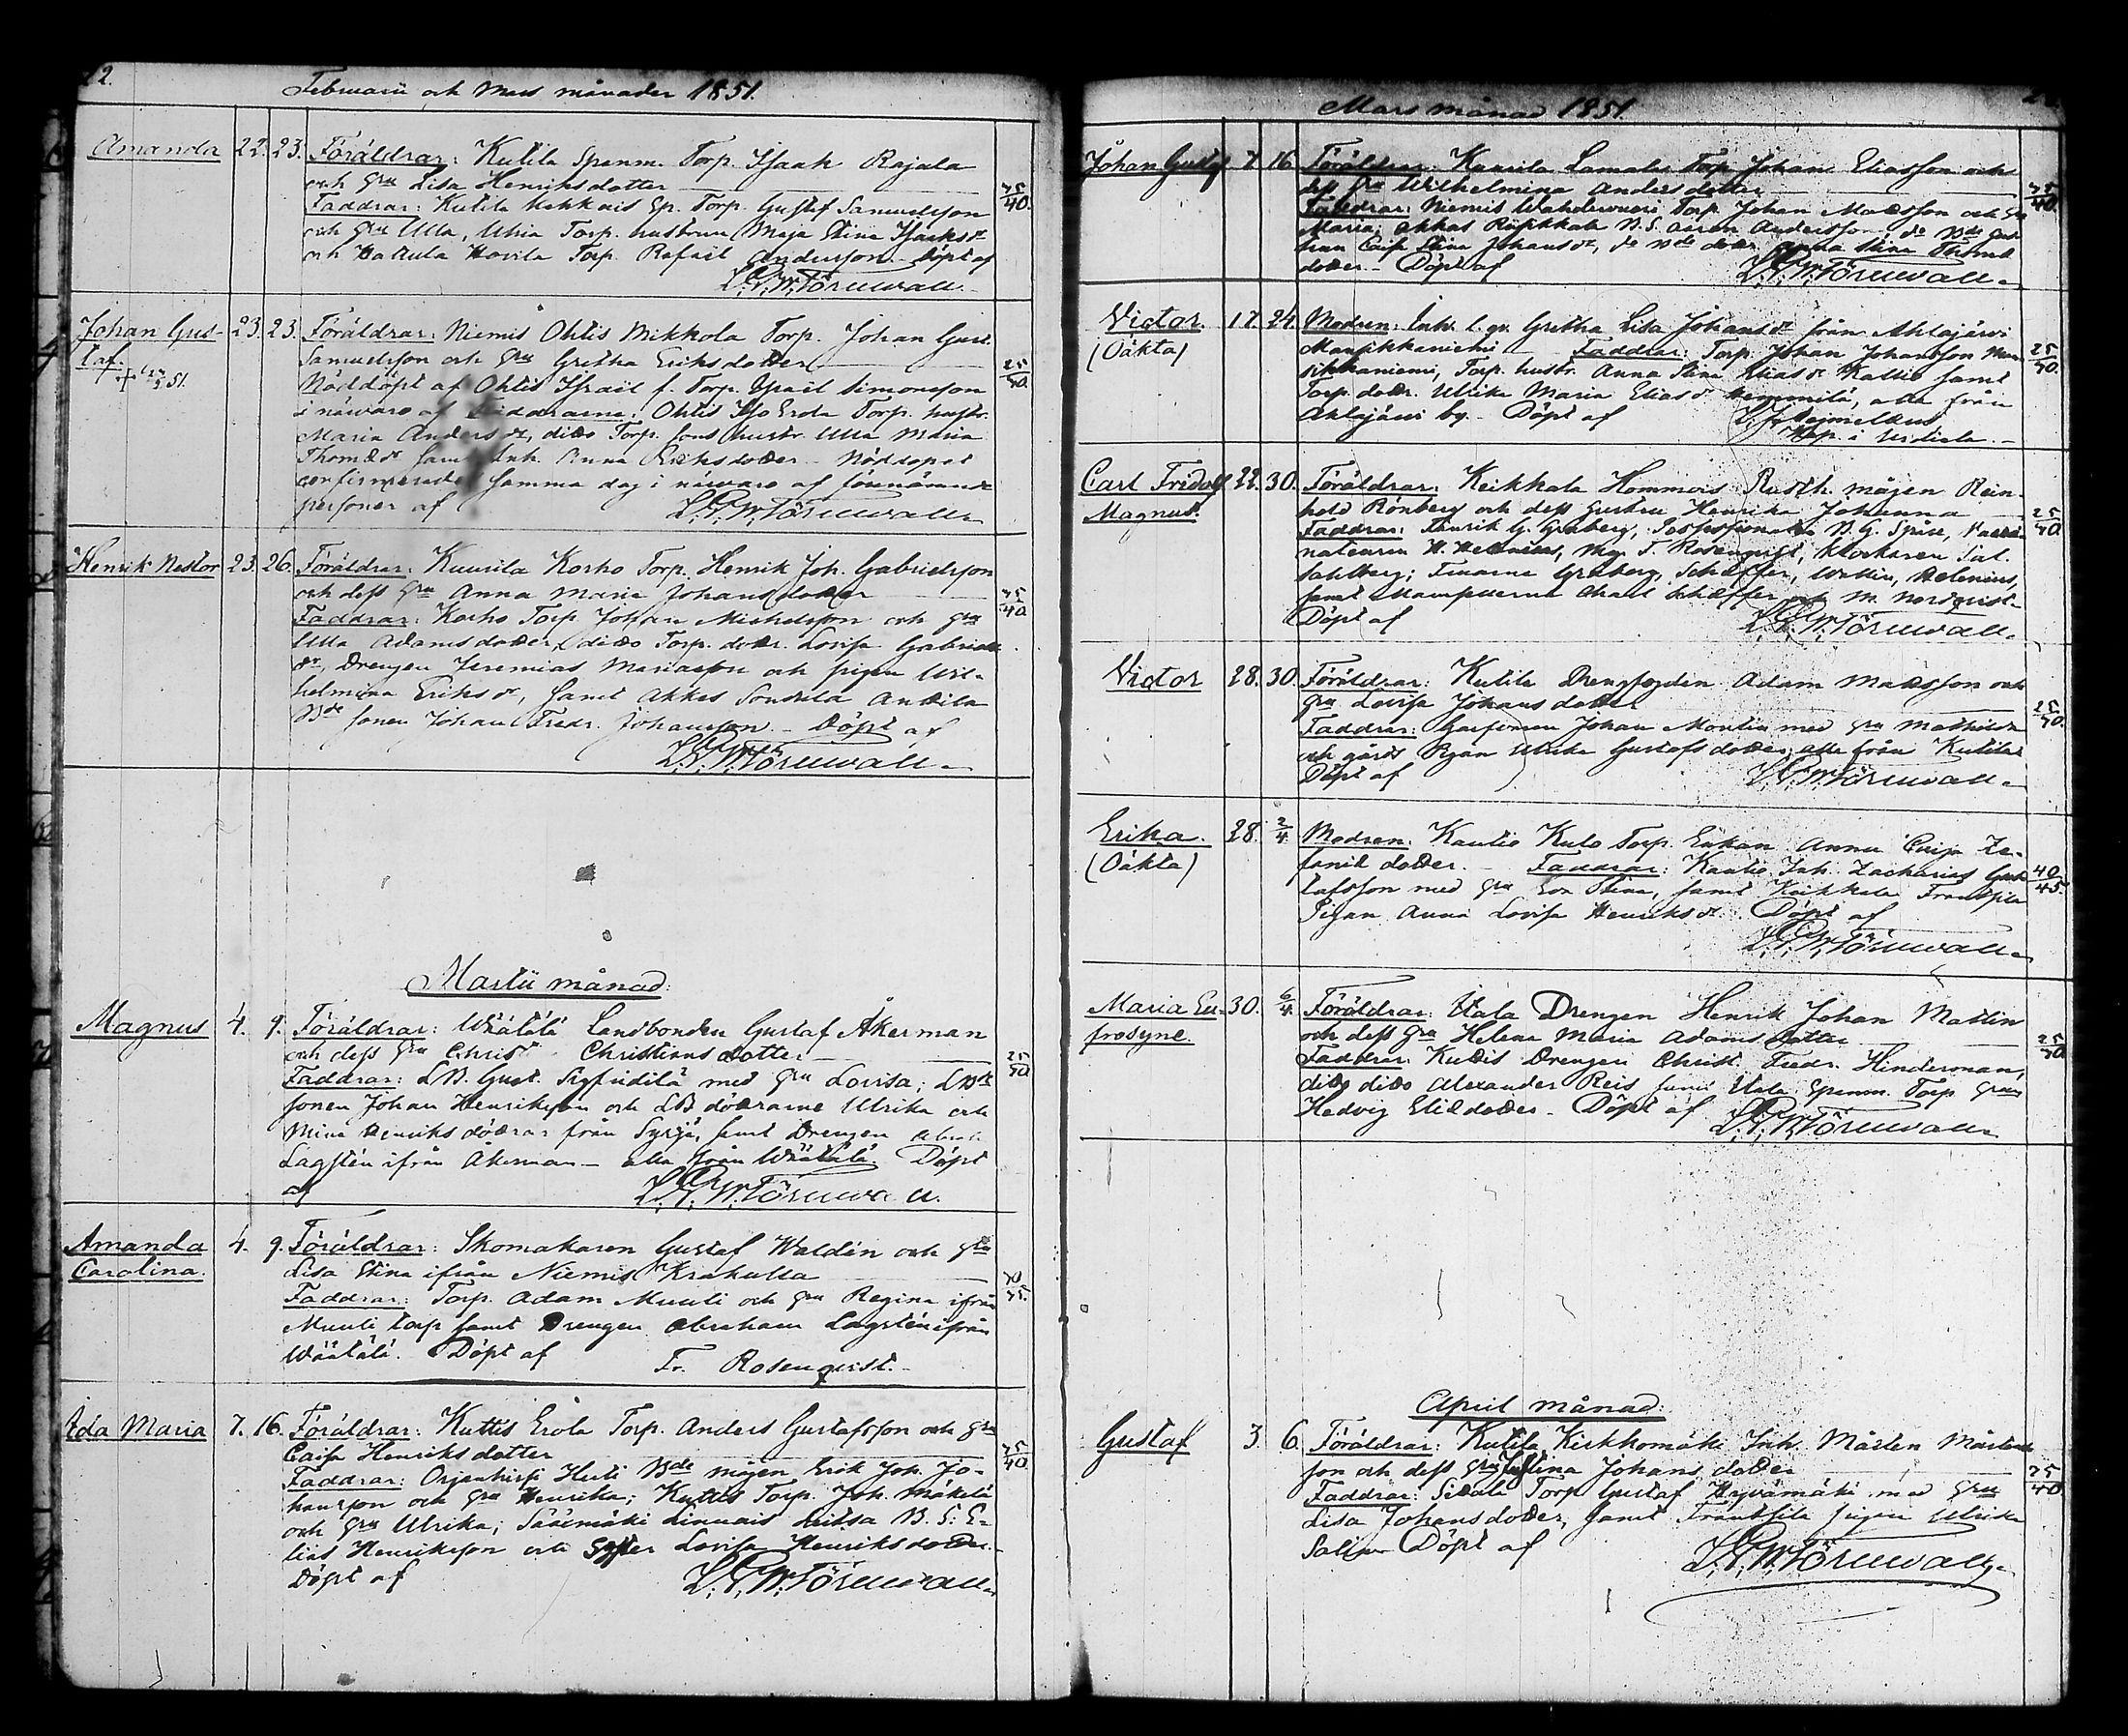 22.
Februarii och Mars månader 1851.
Amanda 22. 23. Föräldrar: Kutila Spanm. Torp. Isaak Rajala
och Hru Lisa Henriksdotter 35/40.
Faddrar: Kutila Torp. Gustaf Samuelsson
och Hru Ulla, Uhia Torp. hustrun Maja Stina Isaksdr
och Torp. Rafael Andersson. Döpt af
L. G. W. Törnwall
Johan Gus- 23. 23. Föräldrar: Niemis Ohtis Mikkola Torp. Johan Gust.
taf Samuelsson och Hru Gretha Eriksdotter 25/30.
Nöddöpt af Ohtis Israil f. Torp. Israil Simonsson
i närvaro af Faddrarne: Ohtis Iso Erola Torp. hustr.
Maria Andersdr, dito Torp. sons hustr. Ulla Maria
Thomædr samt Inh. Anna Eriksdotter. Nöddopet
confirmerades samma dag i närvaro af förenämnde
personer af L. G. W. Törnwall
Henrik Nestor 23. 26. Föräldrar: Kuurila Korho Torp. Henrik Joh. Gabrielsson
och dess Hru Anna Maria Johansdotter 35/40.
Faddrar: Korho Torp. Johan Michelsson och Hru
Ulla Adamsdotter, dito Torp. dottr. Lovisa Gabriels
dr, Drengen Jeremias Mariasson och pigan Wil-
helmina Eriksdr, samt Akkas Sontila Antila
Bde sonen Johan Fredr. Johansson. Döpt af
L. G. W. Törnwall
Martii månad:
Magnus 4. 9. Föräldrar: Wäätälä Landbonden Gustaf Åkerman
och dess Hru Christ. Christiansdotter 25/30
Faddrar: LB. Gust. Sigfridilä med Hru Lovisa; LBde
sonen Johan Henriksson och LB döttrarne Ulrika och
Mina Henriksdöttrar från Syrjä, samt Drengen Abrah.
Lagstén ifrån Åkerman - alla från Wäätälä. Döpt
af L. G. W. Törnwall.
Amanda 4. 9. Föräldrar: Skomakaren Gustaf Waldén och Hru
Carolina. Lisa Stina ifrån Niemis Krakulla
Faddrar: Torp. Adam Muuli och Hru Regina ifrån
Muuli torp samt Drengen Abraham Lagstén ifrån
Wäätälä. Döpt af Fr. Rosenqvist.
Ida Maria 7. 16. Föräldrar: Kuttis Erola Torp. Anders Gustafsson och Hru
Caisa Henriksdotter 35/40.
Faddrar: Orjanhirsi Heiti Bde mågen Erik Joh. Jo-
hansson och Hru Henrika; Kuttis Torp. Joh. Mäkelä
och Hru Ulrika; Säärimäki B. S. E-
lias Henriksson och Syster Lovisa Henriksdotter.
Döpt af L. G. W. Törnwall
Mars månad 1851.
Johan Gustaf 7. 16. Föräldrar: Kuurila Torp. Johan Eliasson och
dess Hru Wilhelmina Andersdotter 35/40
Faddrar: Niemis Torp. Johan Matsson och Hru
Maria; Akkas B. S. Aaron Andersson, do Bde
Caisa Stina Johansdr, do Bde dottr. Anna Stina Thomæ
dotter. Döpt af L. G. W. Törnwall
Victor. 17. 24. Modren: Inh. l. qv. Gretha Lisa Johansdr från Ahlajärvi
(Oäkta) Mansikkaniemi Faddrar: Torp. Johan Johansson Man- 25/30.
sikkaniemi, Torp. hustr. Anna Stina Eliasdr Kallio samt
Torp. dottr. Ulrika Maria Eliasdr, alla från
Ahlajärvi by. Döpt af
Kap. i Urdiala.
Carl Fridolf 22. 30. Föräldrar: Keikkala Hommois Rusth. mågen Rein-
Magnus. hold Rönberg och dess Hustru Henrika Johanna 25/30
Faddrar: Henrik G. Gråberg, Possessionaten B. G. Spåre,
Mag. F. Rosenqvist, Klockaren
Sahlberg; Fruarne Gråberg, Schæffer, Wallin, Helenius,
samt Mamsellerna Schæffer och M. Nordqvist.
Döpt af L. G. W. Törnwall
Victor 28. 30. Föräldrar: Kutila Drengfogden Adam Matsson och
Hru Lovisa Johansdotter 25/30.
Faddrar: Johan Montin med Hru Mathilda
och gårds Pigan Ulrika Gustafsdotter, alla från Kutila
Döpt af L. G. W. Törnwall
Erika. 28. 2/4 Modren: Kautio Kulo Torp. Enkan Anna Caisa Ze-
(Oäkta) fanie dotter. Faddrar: Kautio Inh. Zacharias Gus- 40/45.
tafsson med Hru Eva Stina, samt Keikkala Frantsila
Pigan Anna Lovisa Henriksdr. Döpt af
L. G. W. Törnwall
Maria Eu- 30. 6/4 Föräldrar: Utala Drengen Henrik Johan Mattin
frosyne. och dess Hru Helena Maria Adamsdotter 25/30
Faddrar: Kutis Drengen Christ. Fredr. Hinderman,
dito dito Alexander Reis samt Utala Spanm. Torp. Hrun
Hedvig Eliædotter. Döpt af L. G. W. Törnwall
April månad:
Gustaf 3. 6. Föräldrar: Kutila Kirkkomäki Inh. Mårten Mårtens
son och dess Hru Justina Johansdotter 35/40
Faddrar: Torp. Gustaf Hyvämäki med Hru
Lisa Johansdotter, samt Frantsila pigan Ulrika
Salin. Döpt af L. G. W. Törnwall